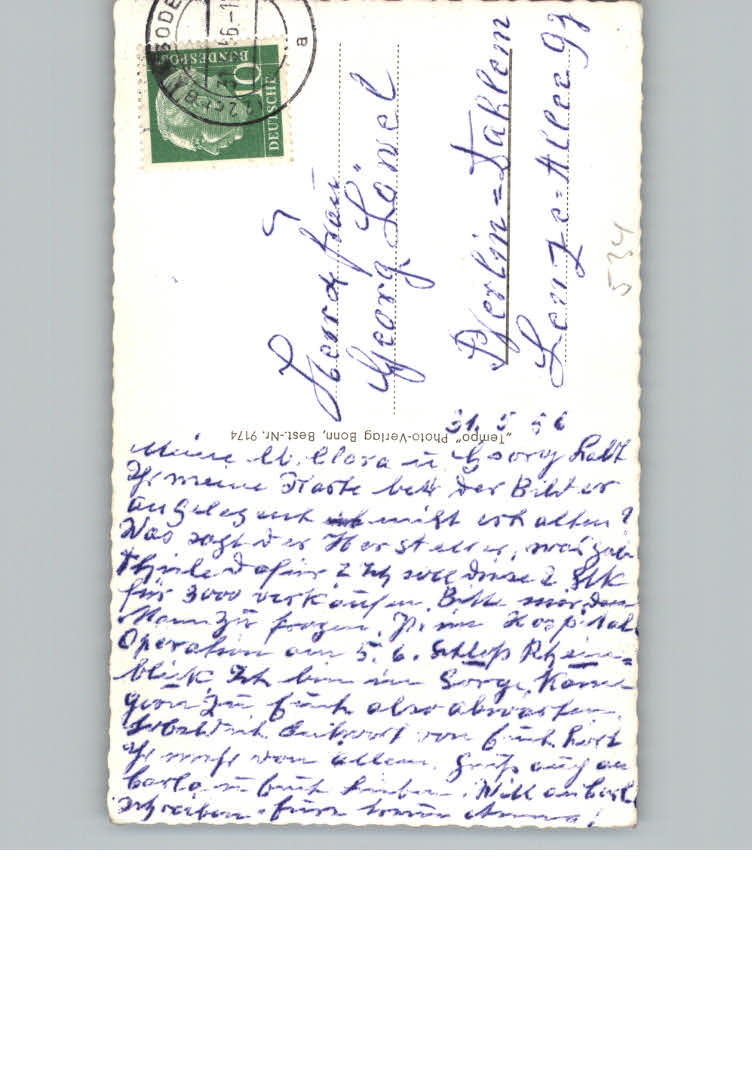 GODE
6.-1
a
DEUTSCHE
BUNDESPOST
10
Herrn & Frau
Georg Löwel
Berlin=Dahlem
Lenze=Allee 97
534
„Tempo" Photo-Verlag Bonn, Best.-Nr. 9174
31. 5 56
Meine l. Clara u. Georg habt
Ihr meine Karte betr der Bilder
angelegenh nicht erhalten?
Was sagt der Hersteller, was
dafür? Ich soll diese 2 Stk
für 3000 verkaufen. Bitte
Mann zu fragen. P. im Hospital
Operation am 5. 6. Schloß Rhein=
blick Ich bin in Sorge. Kann
gern zu Euch also abwarten
Antwort von Euch. hört
Ihr mehr von allem. Gruß auch an
Carla u Euch Lieben. Will an Carla
schreiben. Eure Anna!